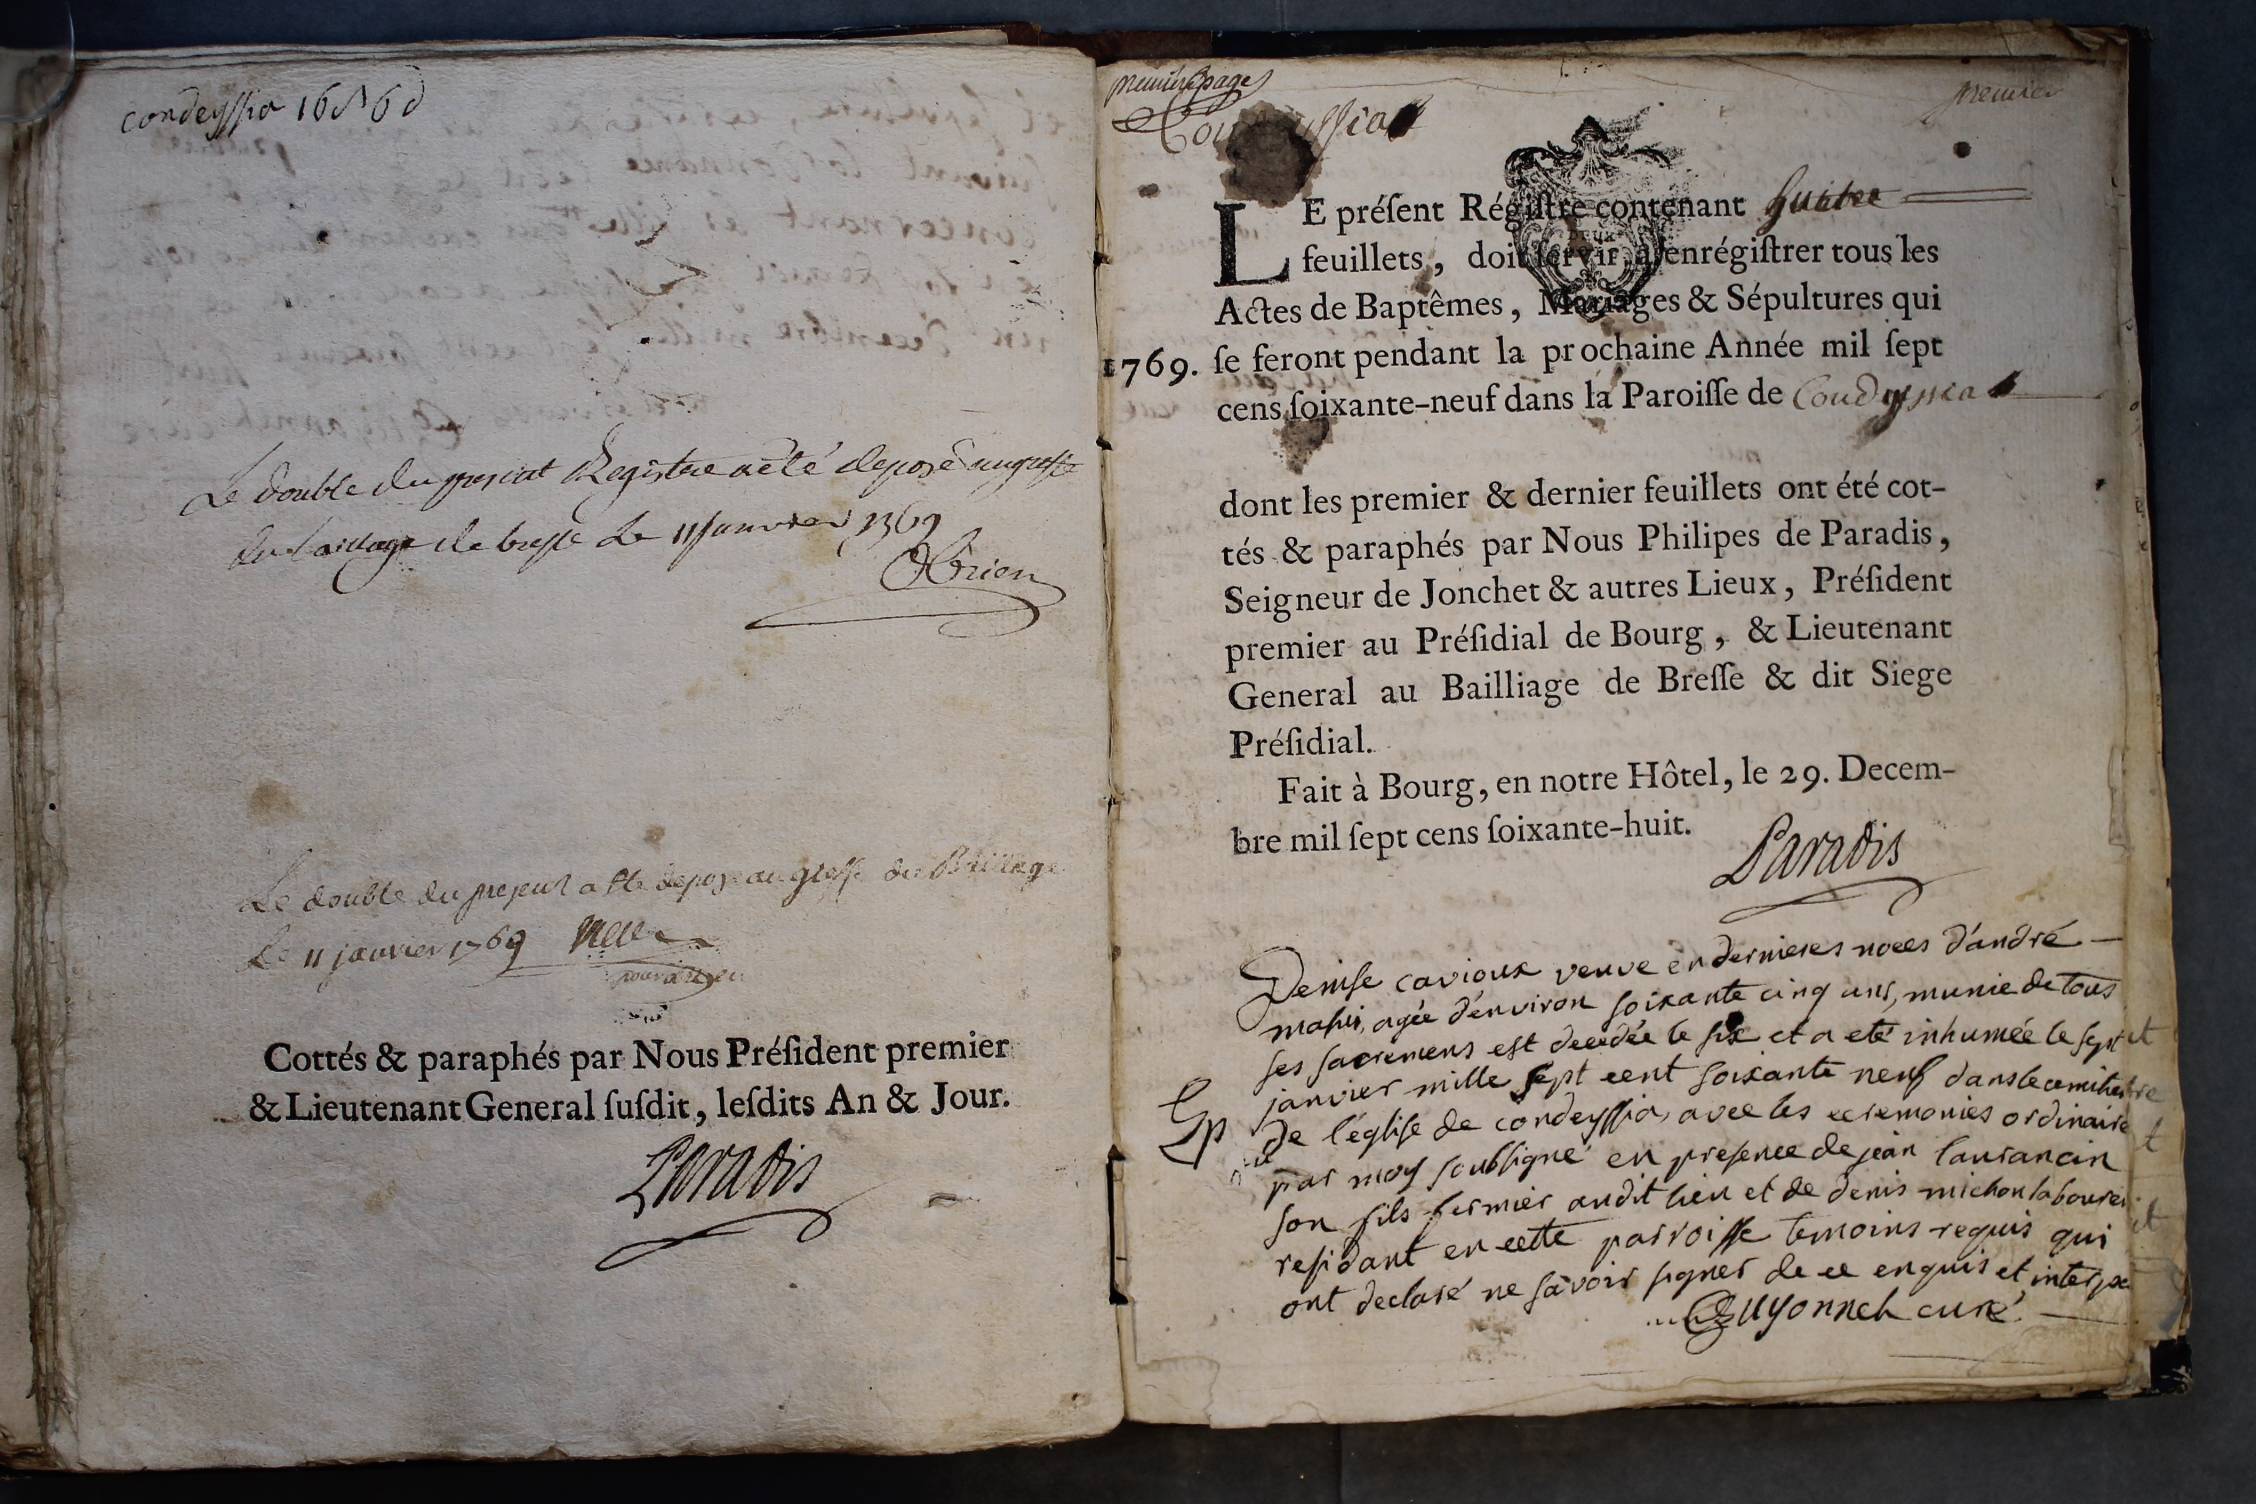 condeyssia
Le double du present Registre a été deposé au greffe
du bailliage de bresse Le 11 Janvier 1769
Obrien
Le double du present a ete depose au greffe du Bailliage
Le 11 janvier 1769
Cottés & paraphés par Nous Préſident premier
& Lieutenant General ſuſdit, leſdits An & Jour.
Paradis
premiere page
premier
LE préſent Régiſtre contenant huit
feuillets, doit ſervir à enrégiſtrer tous les
Actes de Baptêmes, Mariages & Sépultures qui
1769. ſe feront pendant la prochaine Année mil ſept
cens ſoixante-neuf dans la Paroiſſe de Condeyssiat
dont les premier & dernier feuillets ont été cot-
tés & paraphés par Nous Philipes de Paradis,
Seigneur de Jonchet & autres Lieux, Préſident
premier au Préſidial de Bourg, & Lieutenant
General au Bailliage de Breſſe & dit Siege
Préſidial.
Fait à Bourg, en notre Hôtel, le 29. Decem-
bre mil ſept cens ſoixante-huit.
Paradis
Denise cavioux veuve en dernieres noces d'andré
agée d'environ soixante cinq ans, munie de tous
ses sacremens est decedée le six et a eté inhumée le sept
janvier mille sept cent soixante neuf dans le cemitiere
Sp de l'église de condeyssia, avec les ceremonies ordinaires
par moy soussigné en presence de jean lauransin
son fils fermier audit lieu et de denis michon laboureur
residant en cette parroisse temoins requis qui
ont declaré ne sçavoir signer de ce enquis et
Guyonnet curé